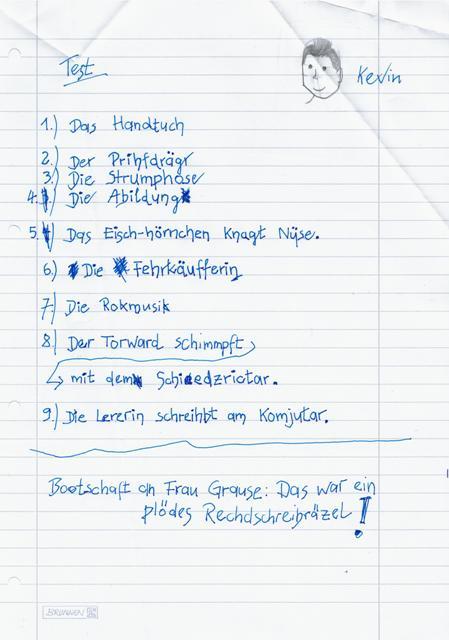 Test
Kevin
1.) Das Handtuch
2.) Der Prihfdrägr
3.) Die Strumphose
4.) Die Abildung
5.) Das Eisch-hörnchen knagt Nüse.
6.) Die Fehrkäufferin
7.) Die Rokmusik
8.) Der Torward schimpft
mit dem Schiedzrictar.
9.) Die Lererin schreihbt am Komjutar.
Bootschaft an Frau Grause: Das war ein
plödes Rechdschreibräzel!
BRUNNEN